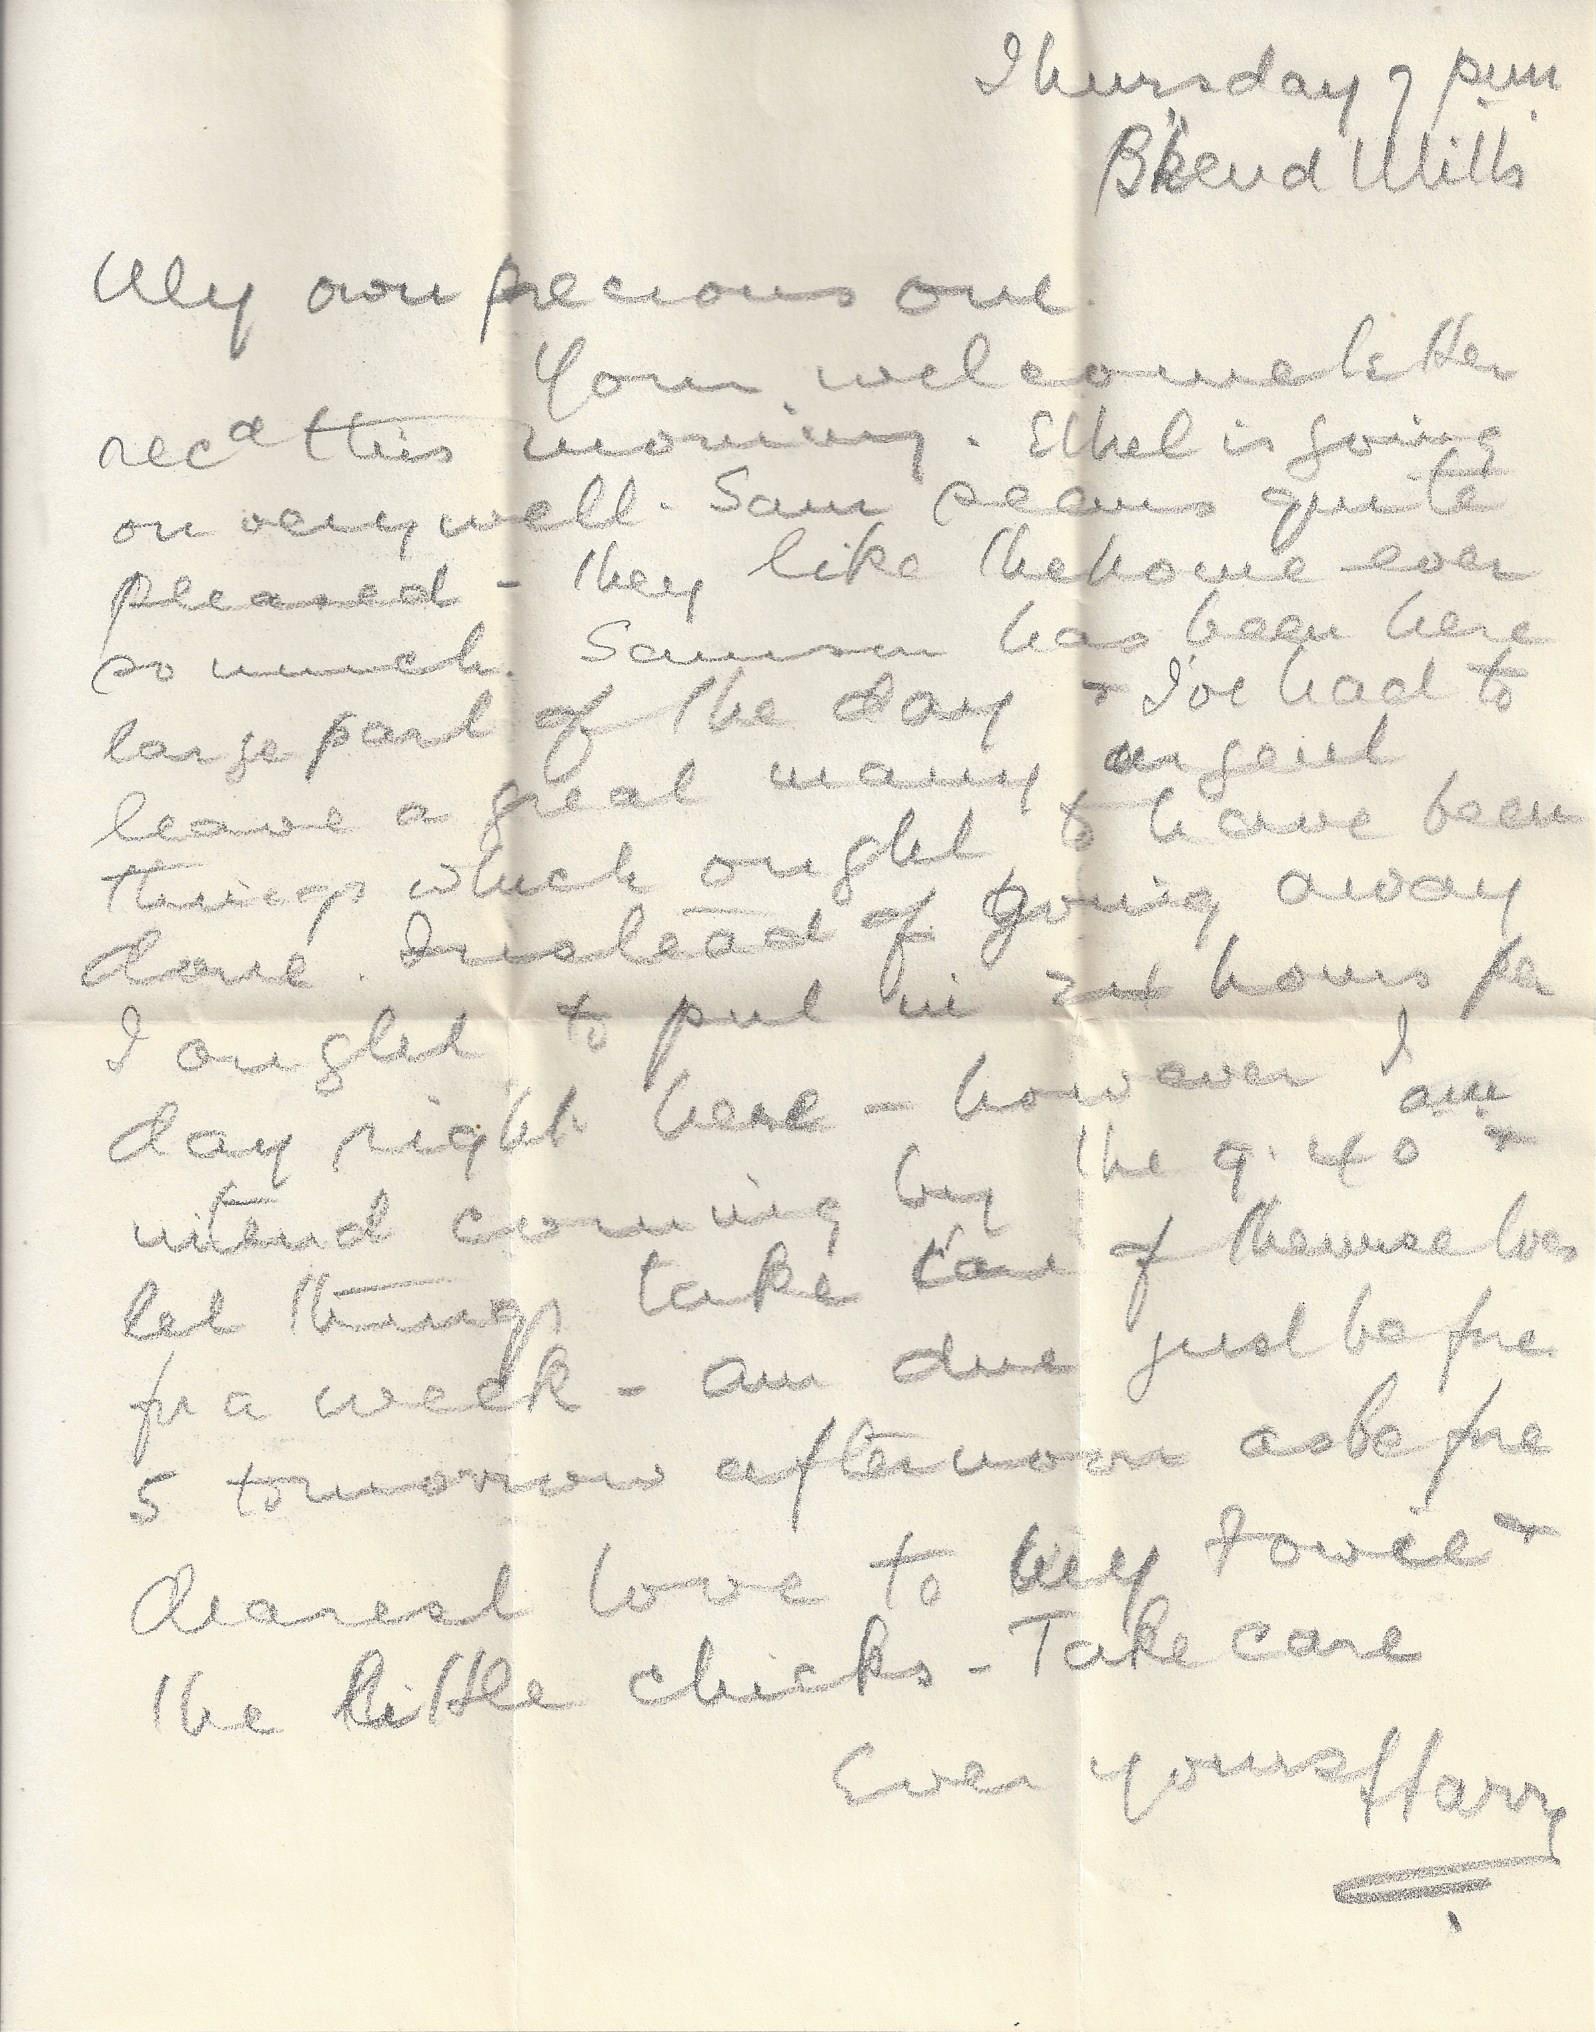 Thursday 7 pm
B'head Mills
My own precious one.
Your welcome letter
recd this morning. Ethel is going
on very well. Sam seems quite
pleased - they like the home ever
so much. Samson has been here
large part of the day & I've had to
leave a great many urgent
things which ought to have been
done. Instead of going away
I ought to put in 24 hours per
day right here - however I am
intend coming by the 9.40 &
let things take care of themselves
for a week - am due just before
5 tomorrow afternoon as before
dearest love to my &
the little chicks - Take care
Ever yours Harry